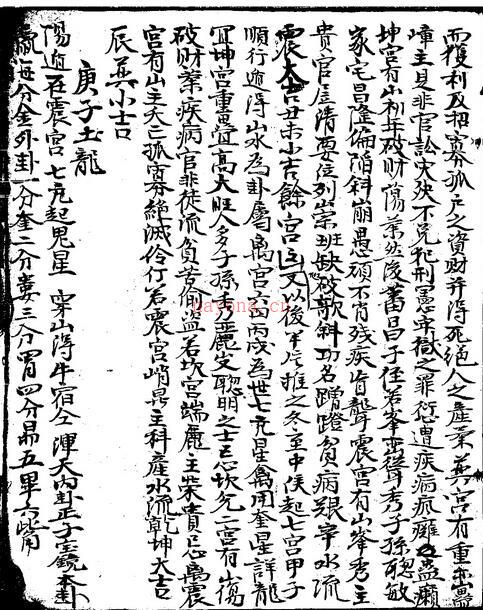 而獲利及招寡孤戶之資財并得死絕人之產業 巽宮有重巒疊
嶂主是非官訟 不免犯刑憲牢獄之罪衍遭疾病瘋癱蠱癩
坤宮有山初年破財蕩業然後蕃昌子侄若峯巒聳秀子孫聰敏
家宅昌隆倘陷斜崩愚頑不肖殘疾盲聾震宮有山峯秀主
貴官居清要位列崇班缺破欹斜功名蹭蹬貧病艱辛水流
震大吉丑未小吉餘宮主 又以後甲 推之冬至中侯起七宮甲子
順行遁得山水為卦屬離宮 丙戌為世七元星禽用奎星詳龍
宜坤宮重疊高大旺人多子孫秀麗女聰明之士已忌坎兌二宮有山傷
破財業疾病官非徒流貧苦偷盜若坎宮端麗主榮貴已忌離震
宮有山主夭亡孤寡絕滅伶仃若震宮峭 主科產水流乾坤大吉
辰巽小吉
庚子土龍
陽遁在震宮七元起鬼星 穿山得牛宿仝渾天內卦 子 鏡本卦
每分金外卦一分奎二分婁三分胃四分昴五畢六觜